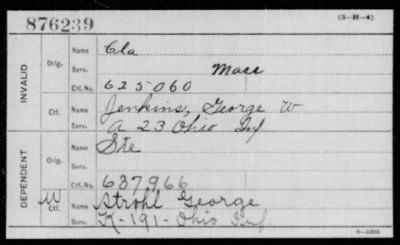 876239 (3-H-4)
INVALID Orig. Name Cla
Serv. Mass
Ctf. No. 625060
Ctf. Name Jenkins, George W
Serv. A 23 Ohio Inf
DEPENDENT Orig. Name Ste
Serv.
Ctf. No. 637966
W Ctf. Name Strohl George
Serv. K-191-Ohio Inf